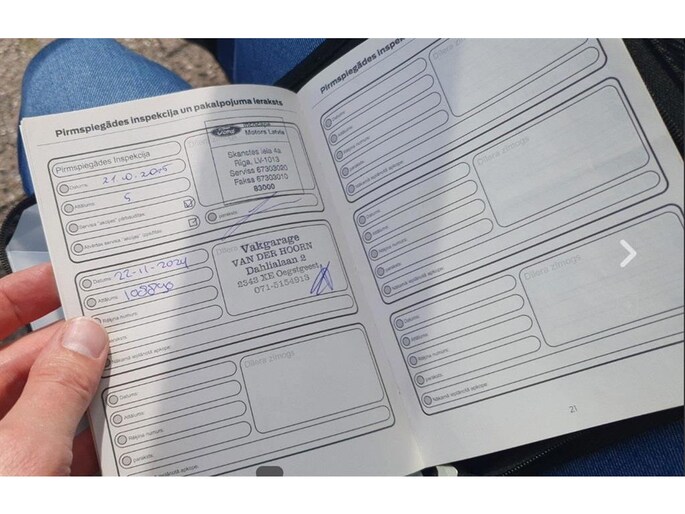 Pirmspiegādes inspekcija un pakalpojuma ieraksts
Pirmspiegādes Inspekcija
Datums 21.10.2015
Attālums 5
Ford
Motors Latvia
Skanstes iela 4a
Rīga, LV-1013
Serviss 67303020
Fakss 67303010
63000
paraksts
Datums 22-11-2024
Attālums
Rēķina numurs
paraksts
Nākamā ieplānotā apkope
Vakgarage
VAN DER HOORN
Dahlialaan 2
2343 XE Oegstgeest
071-5154919
Datums
Attālums
Rēķina numurs
paraksts
Nākamā ieplānotā apkope
Dīlera zīmogs
Pirmspiegādes inspek
Datums
Attālums
Rēķina numurs
paraksts
Nākamā ieplānotā apkope
Dīlera zīmogs
Datums
Attālums
Rēķina numurs
paraksts
Nākamā ieplānotā apkope
Dīlera zīmogs
Datums
Attālums
Rēķina numurs
paraksts
Nākamā ieplānotā apkope
Dīlera zīmogs
21